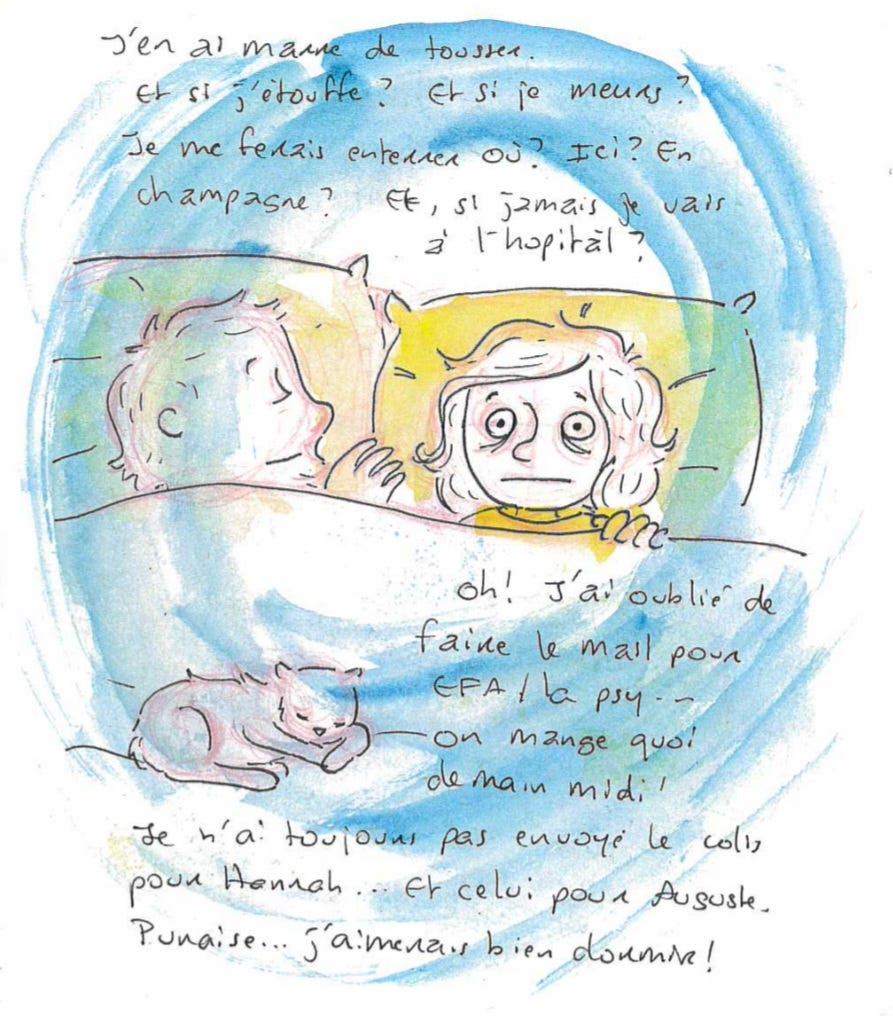 J'en ai marre de tousser.
Et si j'étouffe ? Et si je meurs ?
Je me ferais enterrer où ? Ici ? En
champagne ? Et, si jamais je vais
à l'hopitâl ?
oh ! J'ai oublié de
faire le mail pour
EFA / la psy --
on mange quoi
demain midi !
Je n'ai toujours pas envoyé le colis
pour Hannah... Et celui pour Auguste.
Punaise... j'aimerais bien dormir !